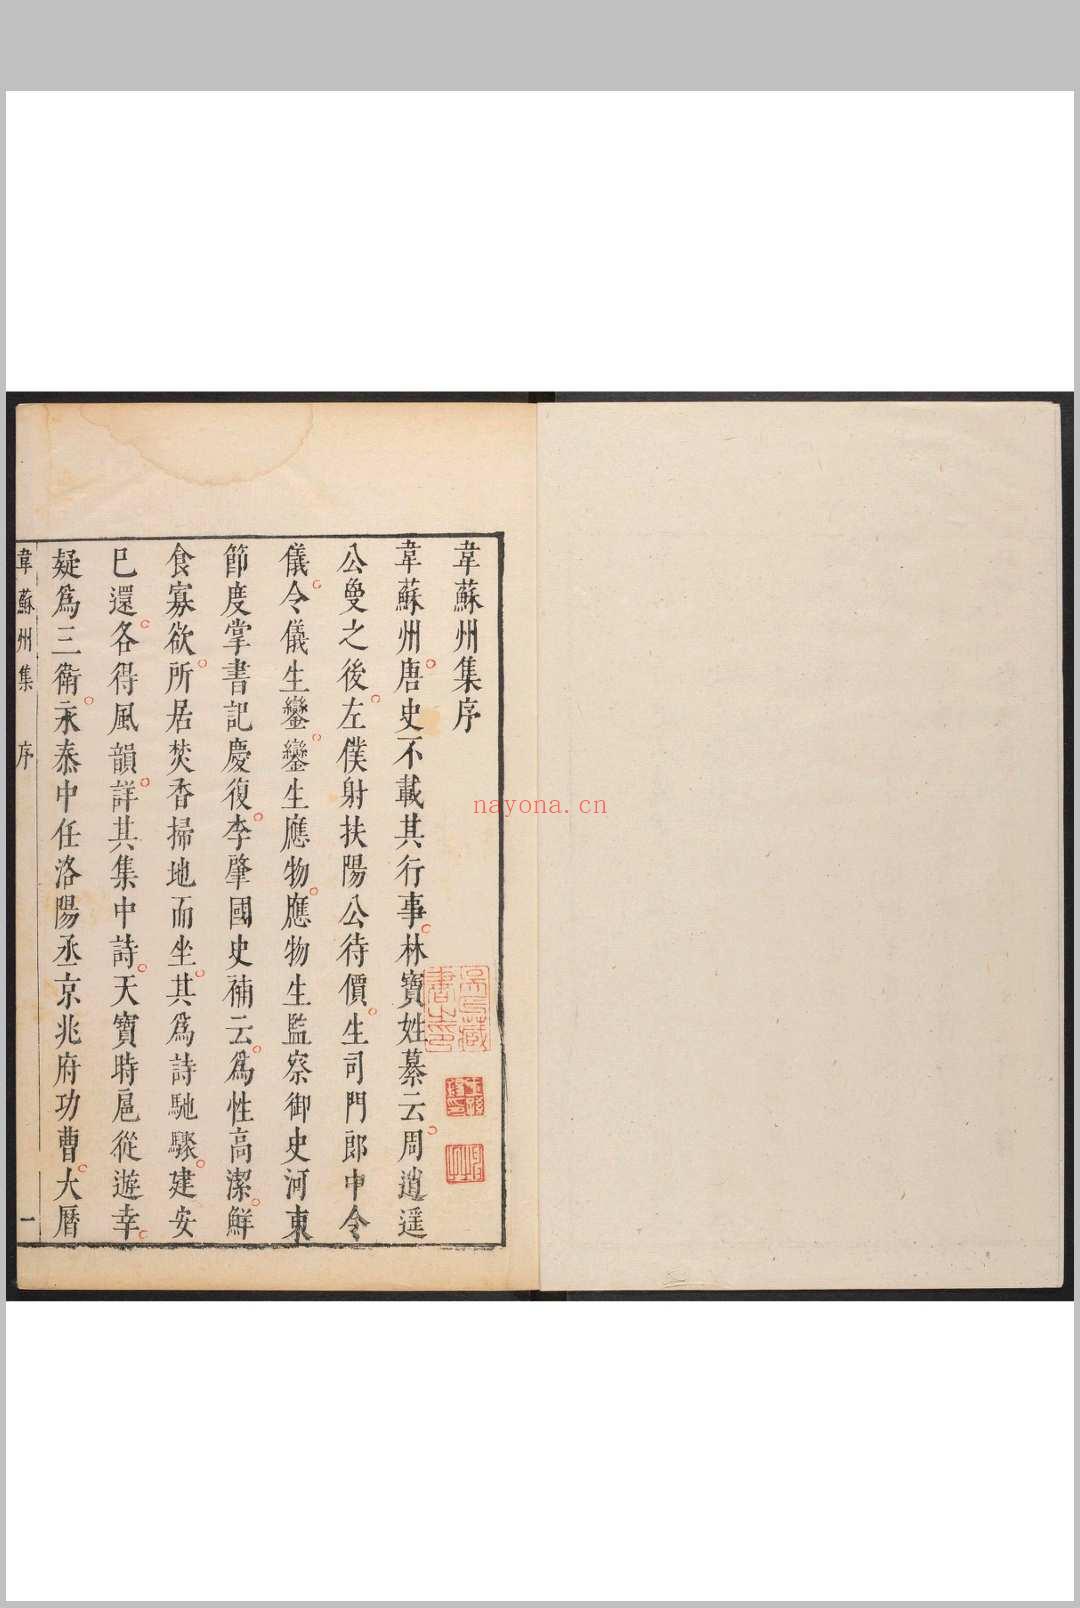 韋蘇州集序
韋蘇州唐史不載其行事林寶姓纂云周逍遥
公敻之後左僕射扶陽公待價生司門郎中令
儀令儀生鑾鑾生應物應物生監察御史河東
節度掌書記慶復李肇國史補云爲性高潔鮮
食寡欲所居焚香掃地而坐其爲詩馳驟建安
已還各得風韻詳其集中詩天寶時扈從遊幸
疑爲三衛永泰中任洛陽丞京兆府功曹大曆
韋蘇州集 序 一
nayona.cn